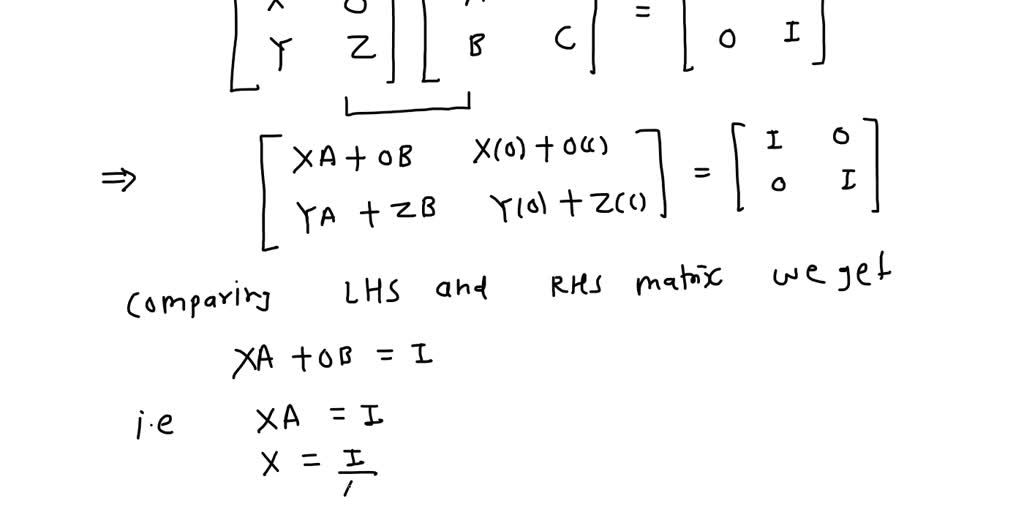 Y Z B C = 0 I
⇒ [XA + 0B X(0) + 0(C)] = [I 0]
[YA + ZB Y(0) + Z(C)] [0 I]
Comparing LHS and RHS matrix we get
XA + 0B = I
i.e XA = I
X = I/